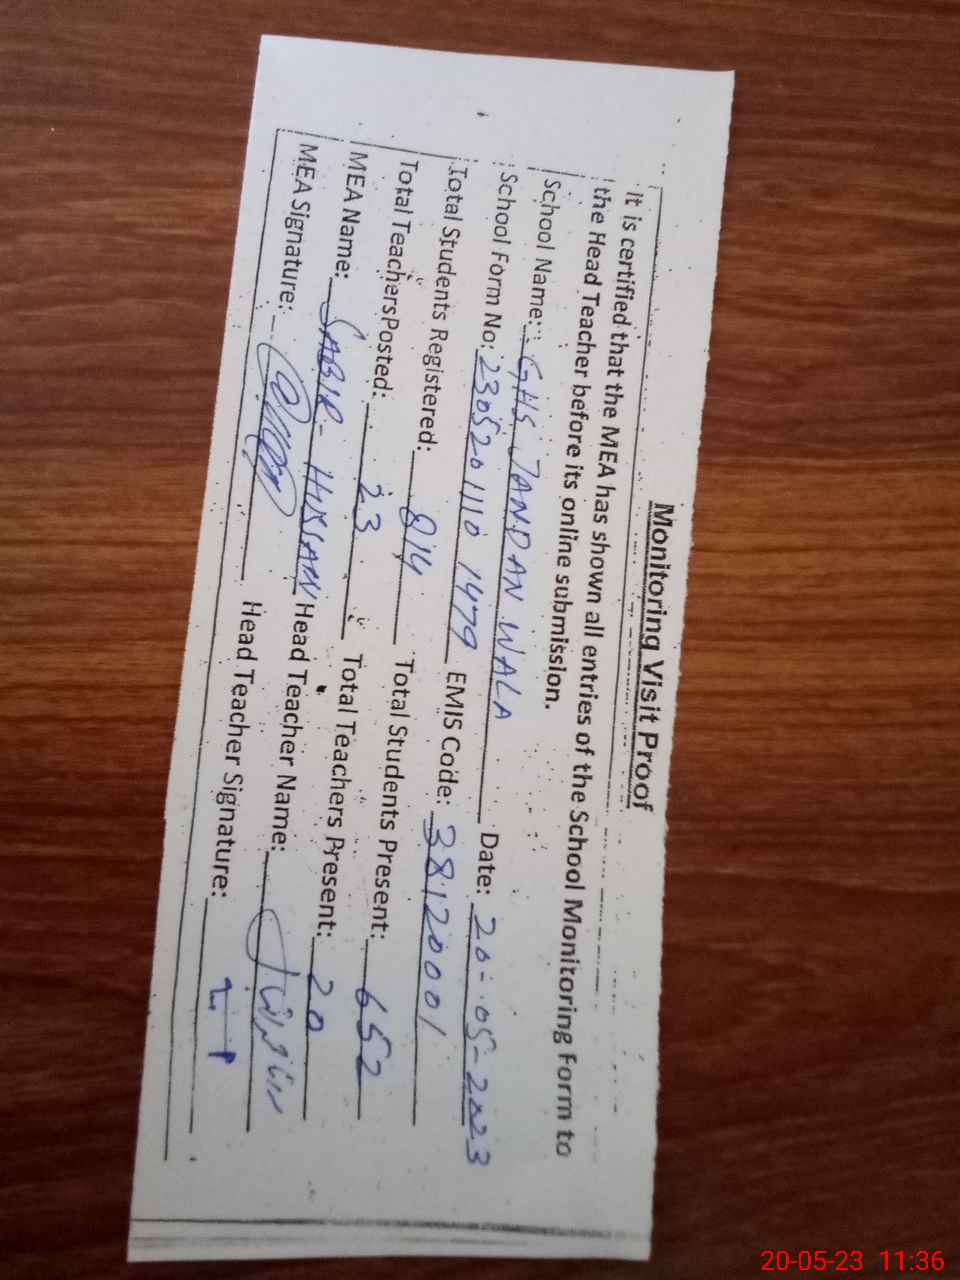 Monitoring Visit Proof
It is certified that the MEA has shown all entries of the School Monitoring Form to
the Head Teacher before its online submission.
School Name: GHS JANDAN WALA Date: 20-05-2023
School Form No: 2305201110 1479 EMIS Code: 38120001
Total Students Registered: 814 Total Students Present: 652
Total Teachers Posted: 23 Total Teachers Present: 20
MEA Name: SABIR HUSSAIN Head Teacher Name:
MEA Signature: Head Teacher Signature:
20-05-23 11:36